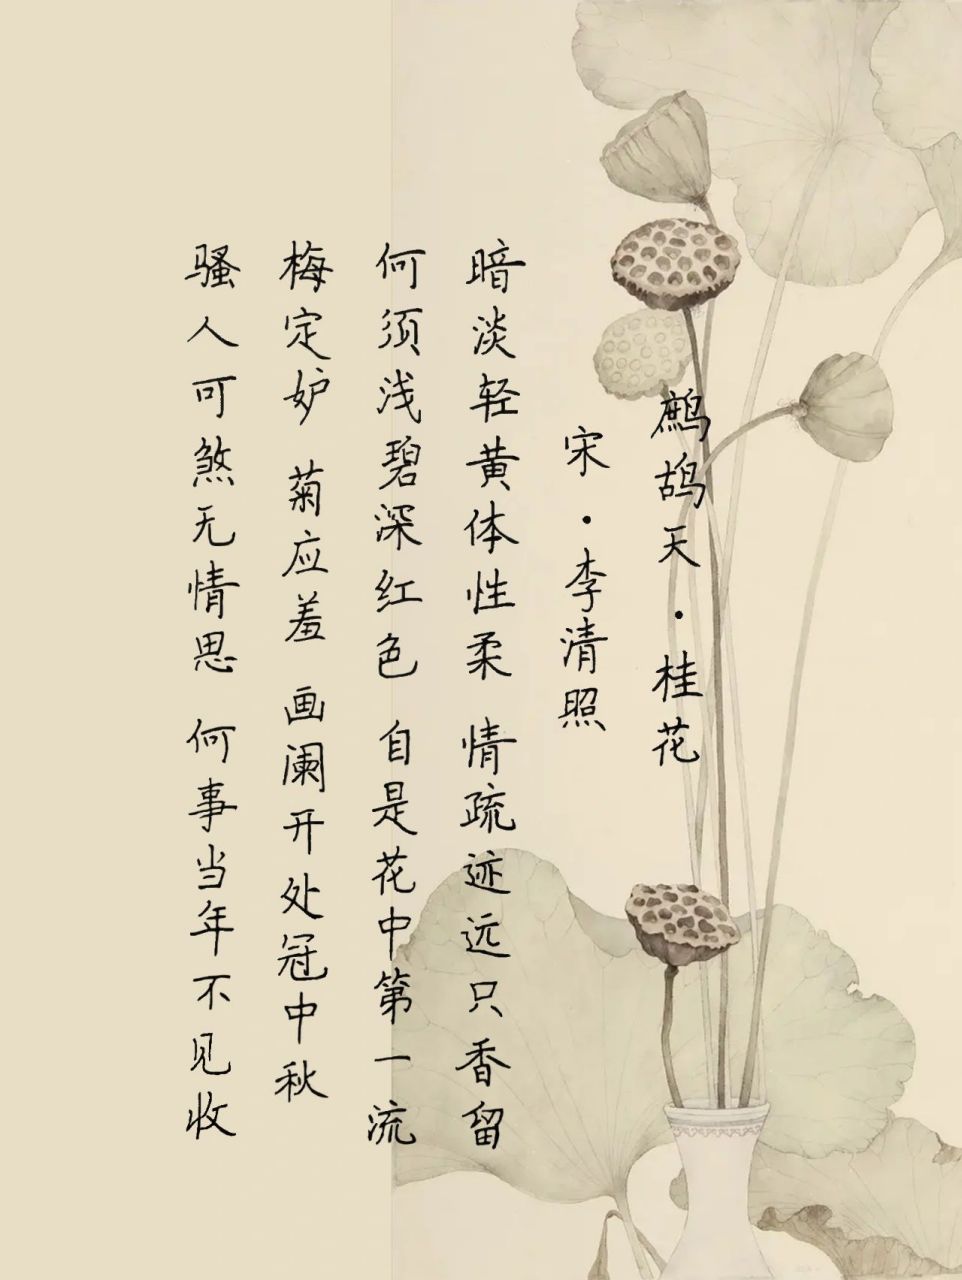 鹧鸪天·桂花
宋·李清照
暗淡轻黄体性柔 情疏迹远只香留
何须浅碧深红色 自是花中第一流
梅定妒 菊应羞 画阑开处冠中秋
骚人可煞无情思 何事当年不见收